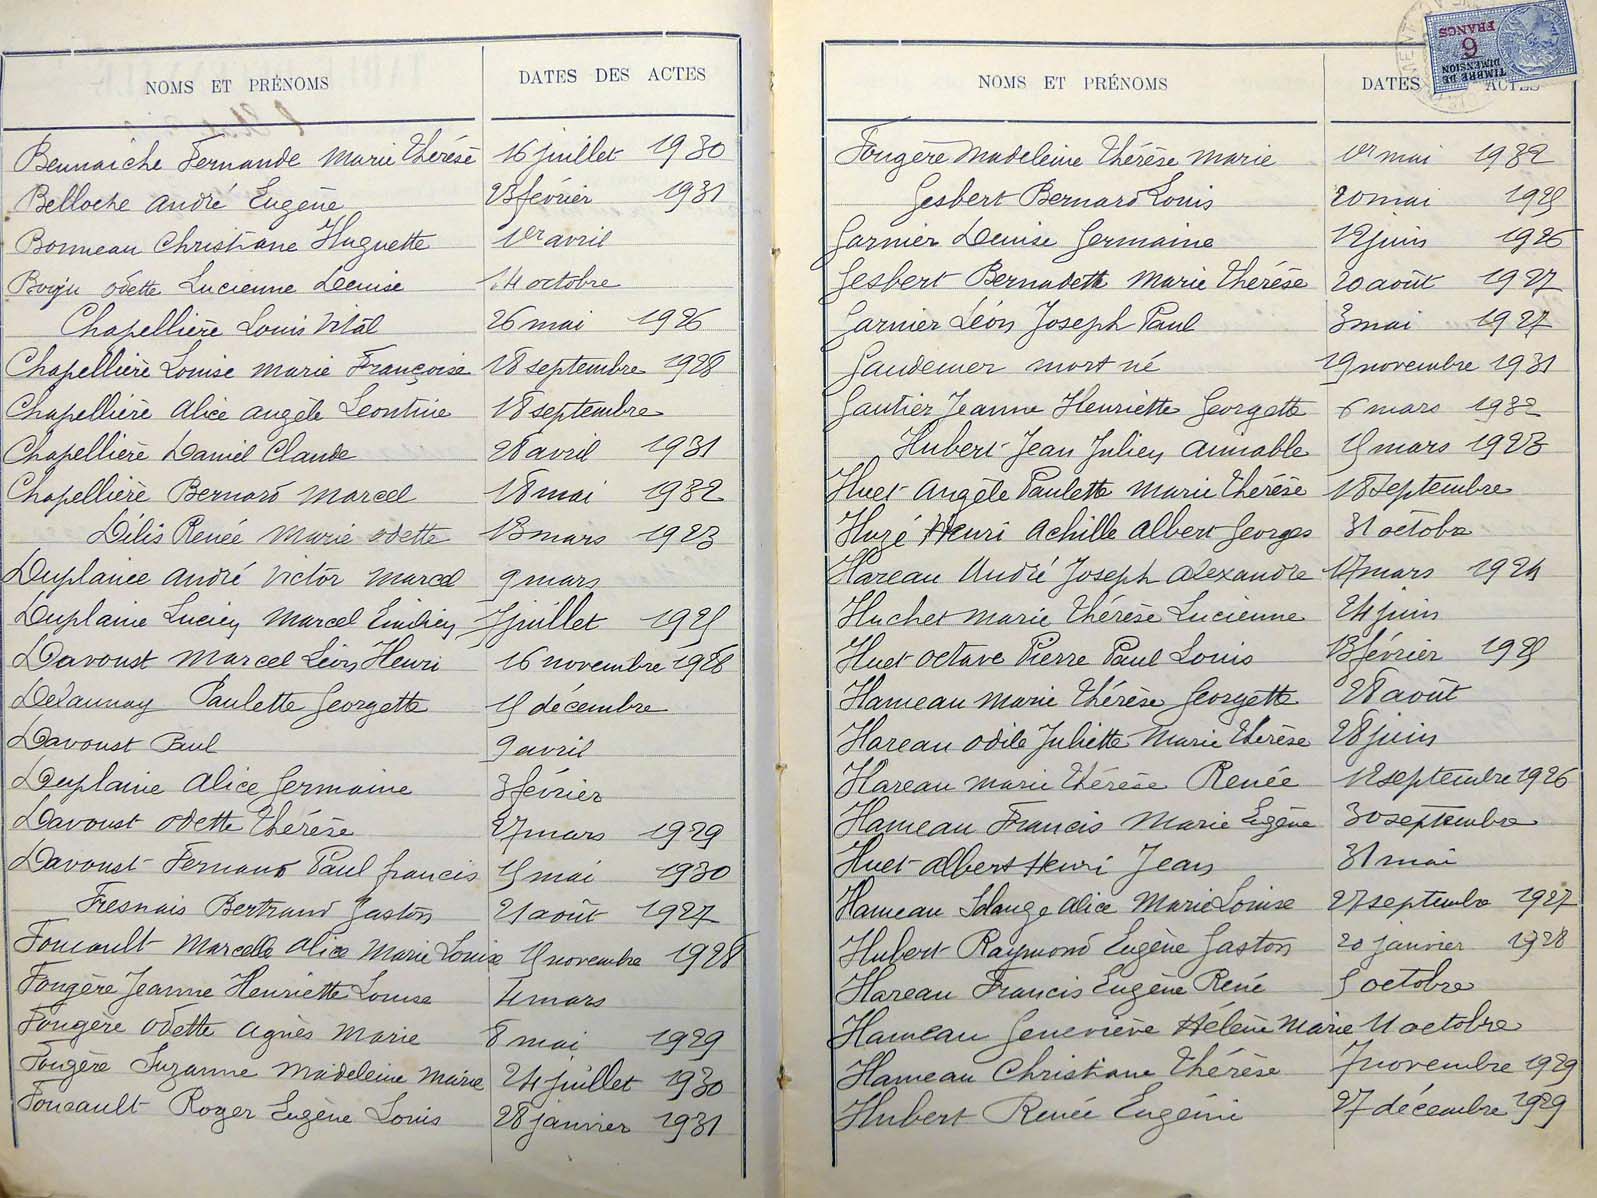 NOMS ET PRÉNOMS DATES DES ACTES
Bennaiche Fernande Marie Thérèse 16 juillet 1930
Belloche André Eugène 23 février 1931
Bonneau Christiane Huguette 1er avril
Odette Lucienne Denise 14 octobre
Chapellière Louis Vital 26 mai 1926
Chapellière Louise Marie Françoise 18 septembre 1928
Chapellière Alice Angèle Léontine 18 septembre
Chapellière Daniel Claude 28 avril 1931
Chapellière Bernard Marcel 18 mai 1932
Délis Renée Marie Odette 13 mars 1923
Duplaine André Victor Marcel 9 mars
Duplaine Lucien Marcel Emilien 7 juillet 1925
Davoust Marcel Léon Henri 16 novembre 1928
Delaunay Paulette Georgette 15 décembre
Davoust Paul 9 avril
Duplaine Alice Germaine 3 février
Davoust Odette Thérèse 27 mars 1929
Davoust Fernand Paul Francis 15 mai 1930
Fresnais Bertrand Gaston 21 août 1927
Foucault Marcelle Alice Marie Louise 15 novembre 1928
Fougère Jeanne Henriette Louise 4 mars
Fougère Odette Agnès Marie 8 mai 1929
Fougère Suzanne Madeleine Marie 24 juillet 1930
Foucault Roger Eugène Louis 28 janvier 1931
TIMBRE DE
DIMENSION
6
FRANCS
NOMS ET PRÉNOMS DATES ACTES
Fougère Madeleine Thérèse Marie 1er mai 1932
Gesbert Bernard Louis 20 mai 1925
Garnier Denise Germaine 12 juin 1926
Gesbert Bernadette Marie Thérèse 20 août 1927
Garnier Léon Joseph Paul 3 mai 1927
Gaudemer mort né 19 novembre 1931
Gautier Jeanne Henriette Georgette 6 mars 1932
Hubert Jean Julien Aimable 15 mars 1923
Huet Angèle Paulette Marie Thérèse 18 septembre
Huzé Henri Achille Albert Georges 31 octobre
Hareau André Joseph Alexandre 17 mars 1924
Huchet Marie Thérèse Lucienne 24 juin
Huet Octave Pierre Paul Louis 13 février 1925
Hameau Marie Thérèse Georgette 28 août
Hareau Odile Juliette Marie Thérèse 28 juin
Hareau Marie Thérèse Renée 12 septembre 1926
Hameau Francis Marie Eugène 30 septembre
Huet Albert Henri Jean 31 mai
Hameau Solange Alice Marie Louise 27 septembre 1927
Hubert Raymond Eugène Gaston 20 janvier 1928
Hareau Francis Eugène René 5 octobre
Hameau Geneviève Hélène Marie 11 octobre
Hameau Christiane Thérèse 7 novembre 1929
Hubert Renée Eugénie 27 décembre 1929